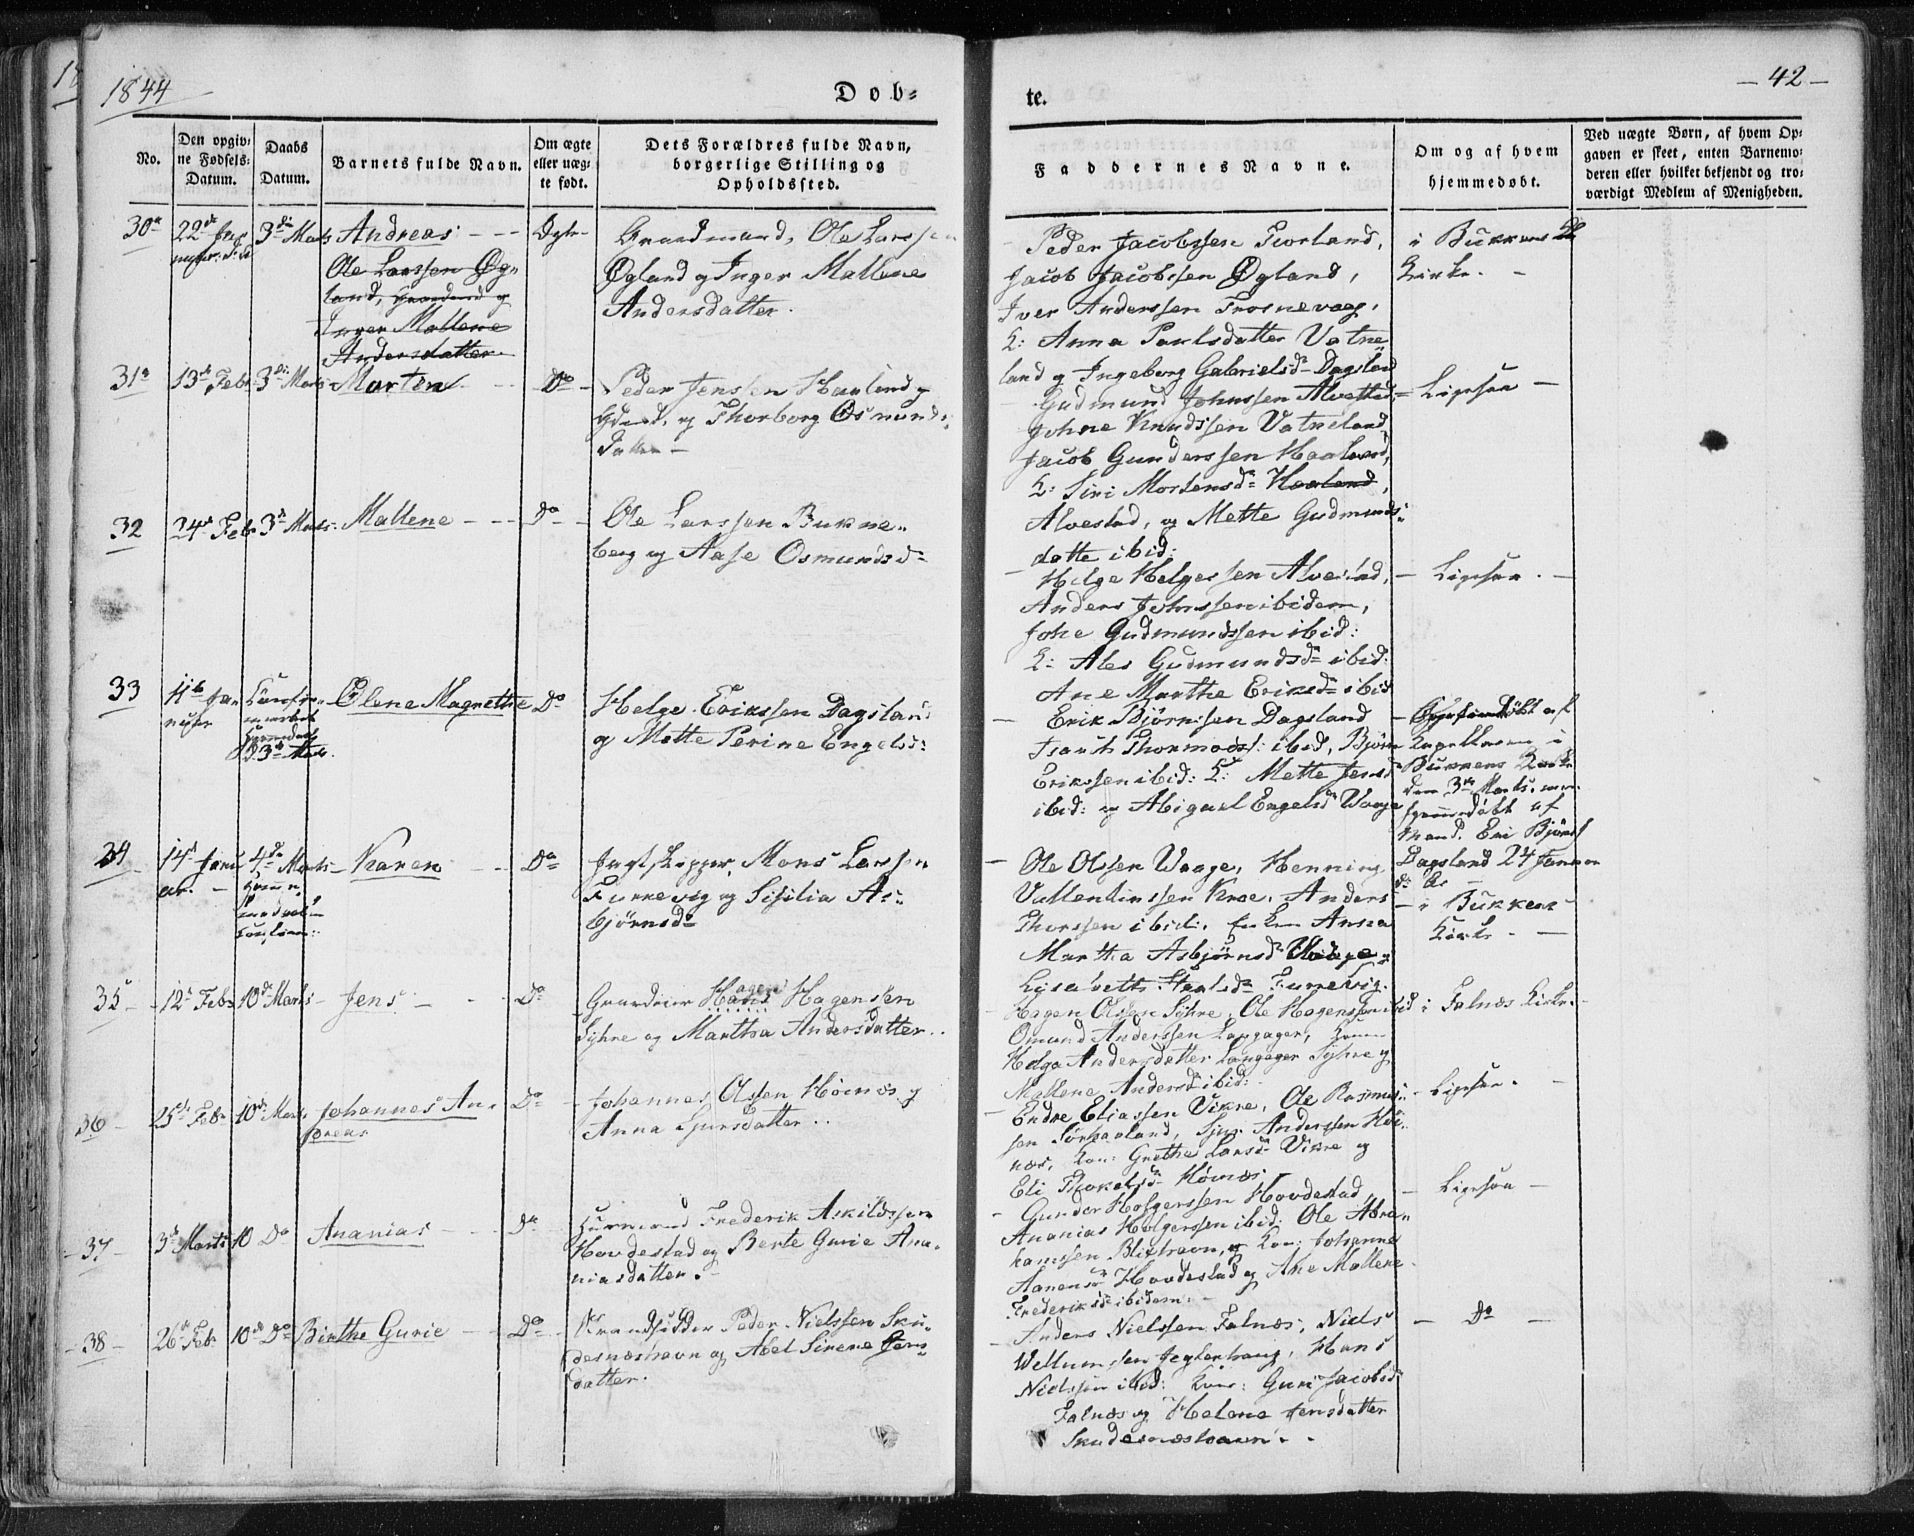 1844
Døb-
te.
– 42 –
No.
Den opgiv-
ne Fødsels-
Datum.
Daabs
Datum.
Barnets fulde Navn.
Om ægte
eller uæg-
te født.
Dets Forældres fulde Navn,
borgerlige Stilling og
Opholdssted.
Faddernes Navne.
Om og af hvem
hjemmedøbt.
Ved uægte Børn, af hvem Op-
gaven er skeet, enten Barnemo-
deren eller hvilket bekjendt og tro-
værdigt Medlem af Menigheden.
30
22de
3die Marts
Andreas
Ole Larssen Øg-
land, Gaardmd og
Inger Mallene
Andersdatter.
Ægte
Gaardmand, Ole Larssen
Øgland og Inger Mallene
Andersdatter.
Peder Jacobssen
Jacob Jacobssen Øgland,
Iver Anderssen Trosnevaag,
K: Anna Paulsdatter Vatne-
land og Ingeborg Gabrielsdr Dagsland
i Bukkens
Kirke.
31
13de Febr
3die Marts
Morten
Do
Peder Jenssen Haaland,
Gdmd, og Thorborg Osmunds-
datter
Gudmund Johnssen Alvestad
Johne Knudssen Vatneland,
Jacob Gunderssen Haaland,
K: Siri Mortensdr Haaland,
Alvestad, og Mette Gudmunds-
datter ibid:
Ligesaa
32
24de Febr
3die Marts
Mallene
Do
Ole Larssen Bukne-
berg og Aase Osmundsdr
Helge Helgessen Alvestad,
Anders Johnssen ibidem,
Johe Gudmundssen ibid:
K: Ales Gudmundsdr ibid:
Ane Marthe Eriksdr ibid
Ligesaa.
33
11te Ja-
nuar
d. 3de Marts.
Olene Magnethe
Do
Helge Erikssen Dagsland
og Mette Perine Engelsd:
Erik Bjørnssen Dagsland
Thormods: ibid, Bjørn
Erikssen ibid: K: Mette Jensd
ibid: og Abigael Engelsdr Waage
Hjemmedøbt af
Kapellanen i
Bukkens Kirke
den 3de Marts,
hjemmedøbt af
Mand. Bjørnss
Dagsland 24 Januar
34
14de Janu
ar.
4de Marts
Karen
Do
Jagtskipper, Mons Larssen
Furrevig og Sisilia As-
bjørnsdr
Ole Olssen Waage, Henning
Vallentinssen Kroe, Anders
Thorssen ibid:, Anna
Martha Asbjørnsd Waage,
Lisabeth Furrevig.
i Bukkens
Kirke.
35
12te Febr
10de Marts
Jens
Do
Gaardeier Hans Hagenssen
Hagen
Syhre og Martha Andersdatter.
Hagen Olssen Syhre, Ole Hagenssen ibid
Omund Anderssen Langager,
Helga Andersdatter Langager Syhre og
Mallene Andersd ibid:
i Falnæs Kirke.
36
25de Feb
10de Marts
Johannes An-
dreas
Do
Johannes Olssen Høinæs og
Anna Sjursdatter.
Endre Eliassen Vikre, Ole Rasmus-
sen Sørhaaland, Sjur Anderssen Høi-
næs, Kon: Grethe Larsdr Vikre og
Eli Thorkelsdr Høinæs
Ligesaa.
37
3de Marts
10 Do
Ananias
Do
Huusmand Frederik Askildssen
Hovdestad og Berte Gurie Ana-
niasdatter.
Gunder Holgerssen Hovdestad
Ananias Holgerssen ibid: Ole Abra-
hamsen Blikshavn, og Kon: Johanne
Hovdestad og Ane Mallene
Frederiksd ibidem.
Ligesaa
38
26de Feb.
10de Do
Birthe Gurie
Do
Strandsidder Peder Nielssen Sku-
desnæshavn og Abel Sirene Jens-
datter.
Anders Nielssen Falnæs, Niels
Wellumsen Hans
Nielssen ibid: Kon: Guri Jacobsdr
Falnæs og Helene Jensdatter
Skudesnæshavn.
Do